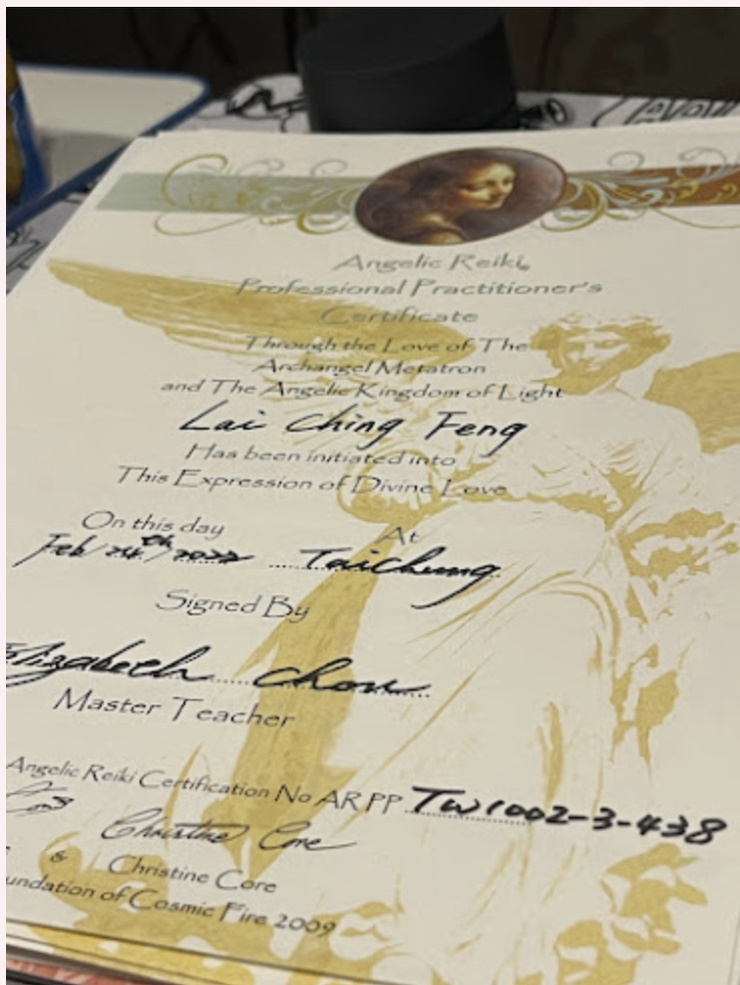 Angelic Reiki
Professional Practitioner's
Certificate
Through the Love of The
Archangel Metatron
and The Angelic Kingdom of Light
Lai Ching Feng
Has been initiated into
This Expression of Divine Love
On this day At
Feb 2022 Taichung
Signed By
Elizabeth Chow
Master Teacher
Angelic Reiki Certification No AR PP TW1002-3-438
Christine Core
& Christine Core
undation of Cosmic Fire 2009